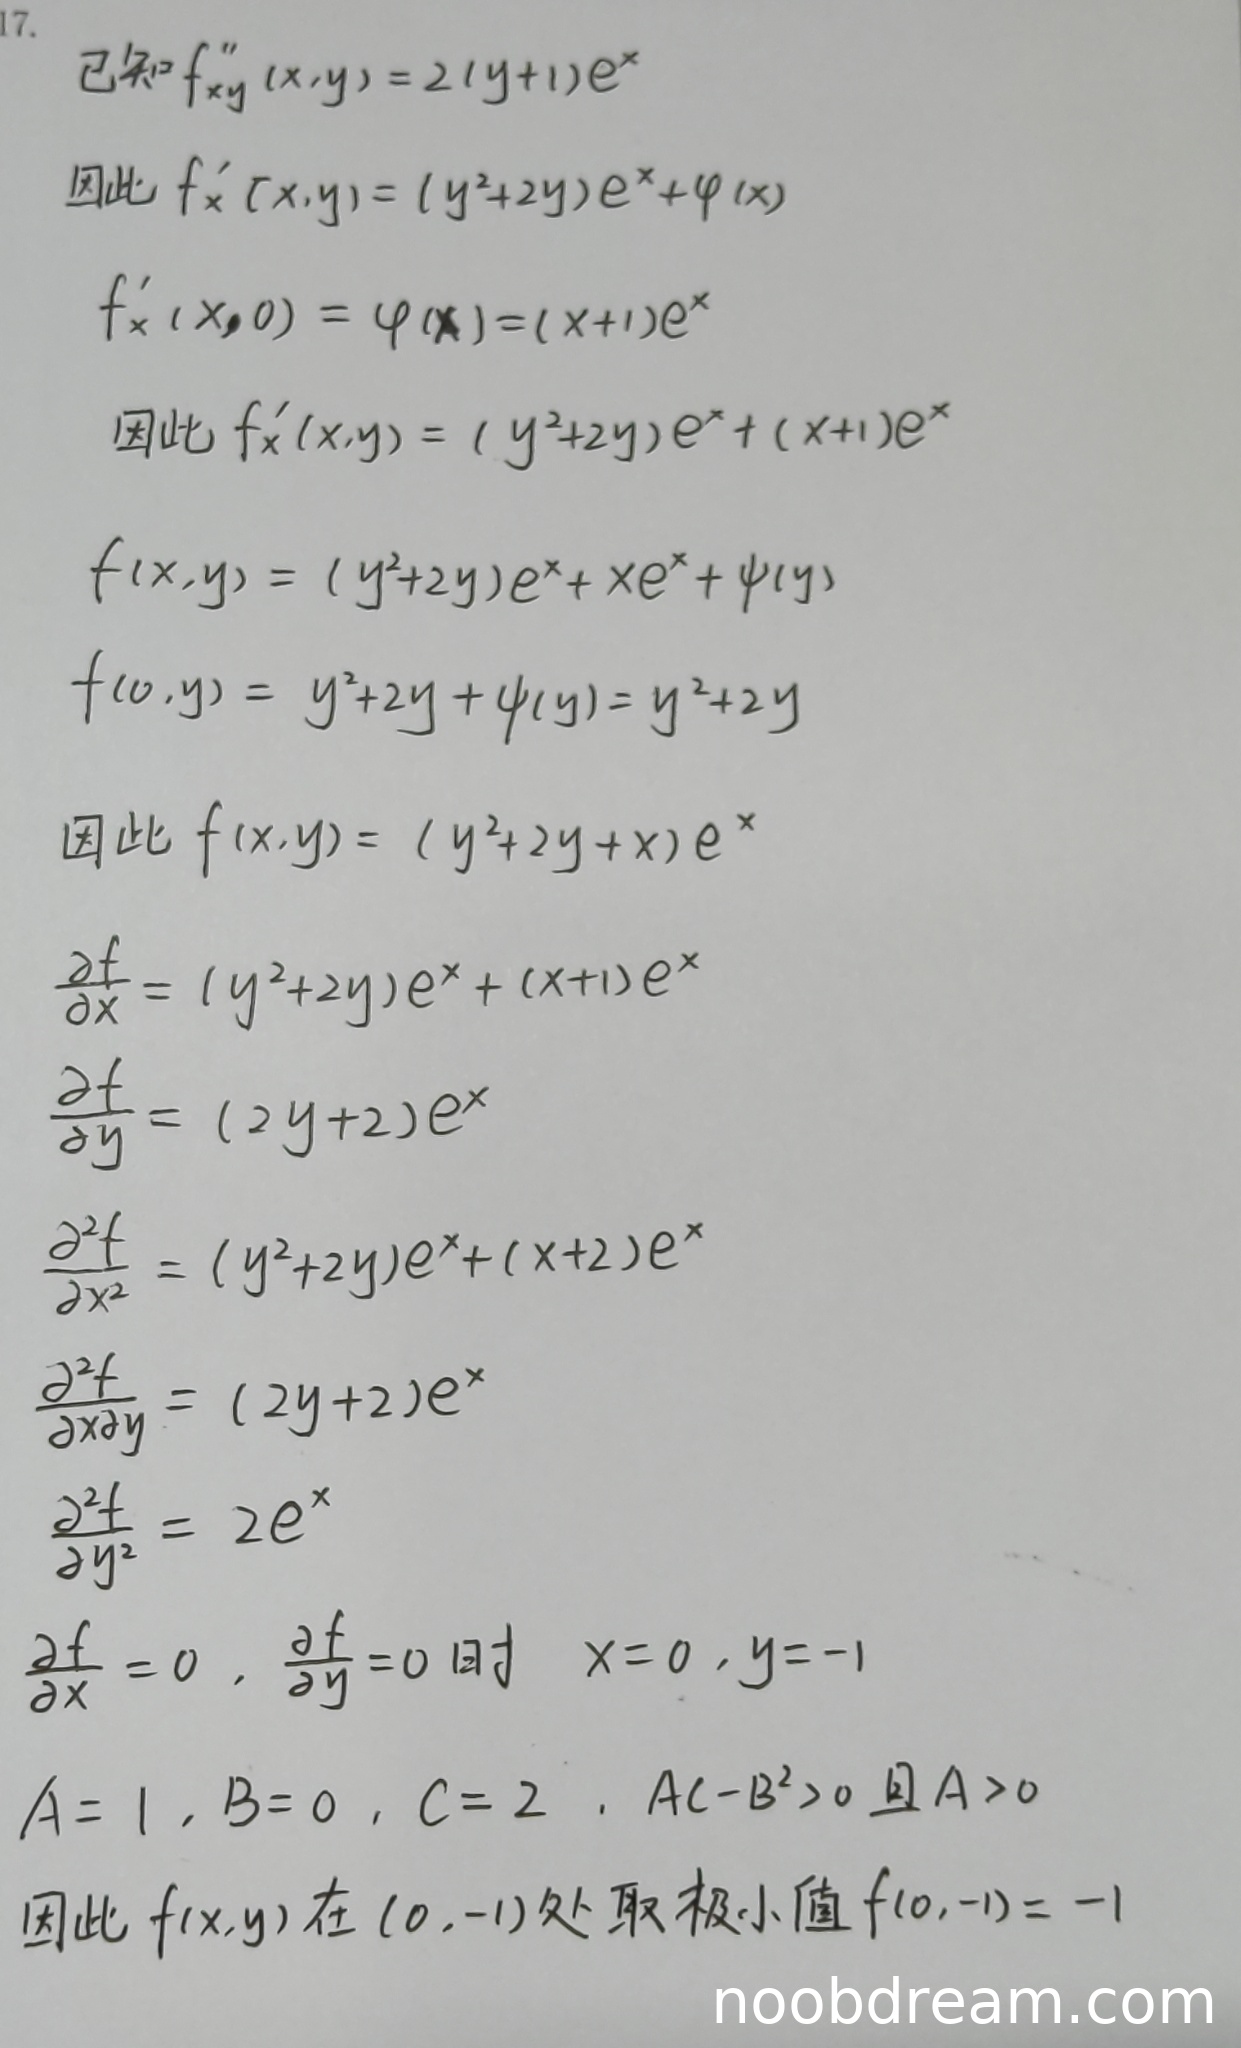 17.
已知 f''xy (x,y) = 2(y+1)e^x
因此 f'x (x,y) = (y²+2y)e^x + φ(x)
f'x (x,0) = φ(x) = (x+1)e^x
因此 f'x (x,y) = (y²+2y)e^x + (x+1)e^x
f(x,y) = (y²+2y)e^x + xe^x + ψ(y)
f(0,y) = y²+2y + ψ(y) = y²+2y
因此 f(x,y) = (y²+2y+x)e^x
∂f/∂x = (y²+2y)e^x + (x+1)e^x
∂f/∂y = (2y+2)e^x
∂²f/∂x² = (y²+2y)e^x + (x+2)e^x
∂²f/∂x∂y = (2y+2)e^x
∂²f/∂y² = 2e^x
∂f/∂x = 0 , ∂f/∂y = 0 时 x=0 , y=-1
A=1 , B=0 , C=2 , AC-B²>0 且 A>0
因此 f(x,y) 在 (0,-1) 处取极小值 f(0,-1) = -1
noobdream.com